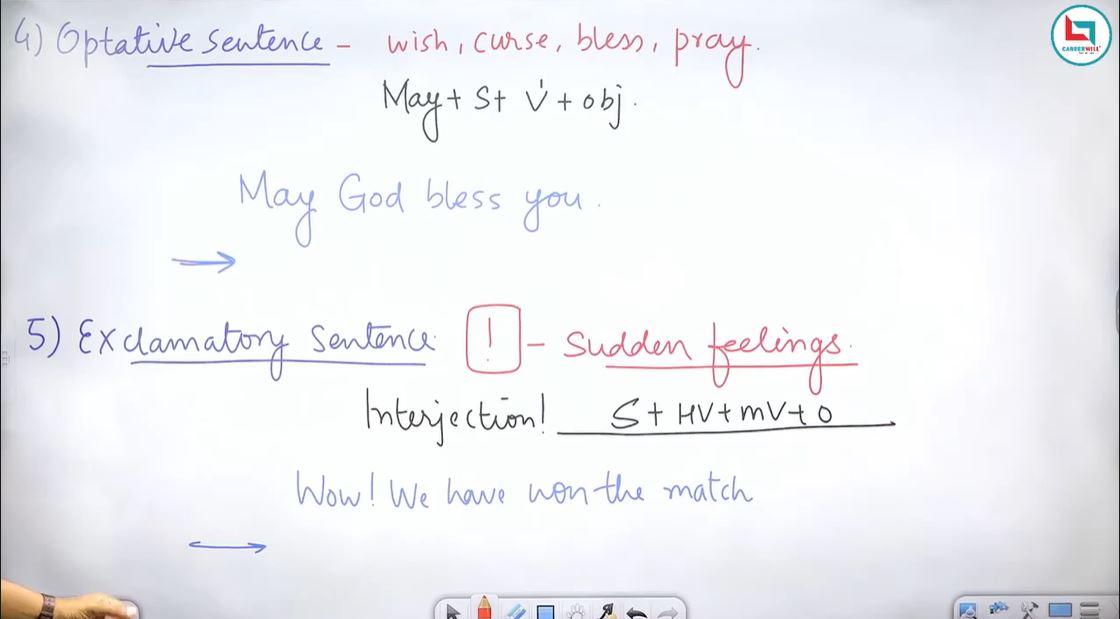 4) Optative sentence - wish, curse, bless, pray.
CAREERWILL
May + S + V¹ + obj.
May God bless you.
5) Exclamatory Sentence: ! - Sudden feelings.
Interjection! S + HV + mV + O
Wow! We have won the match